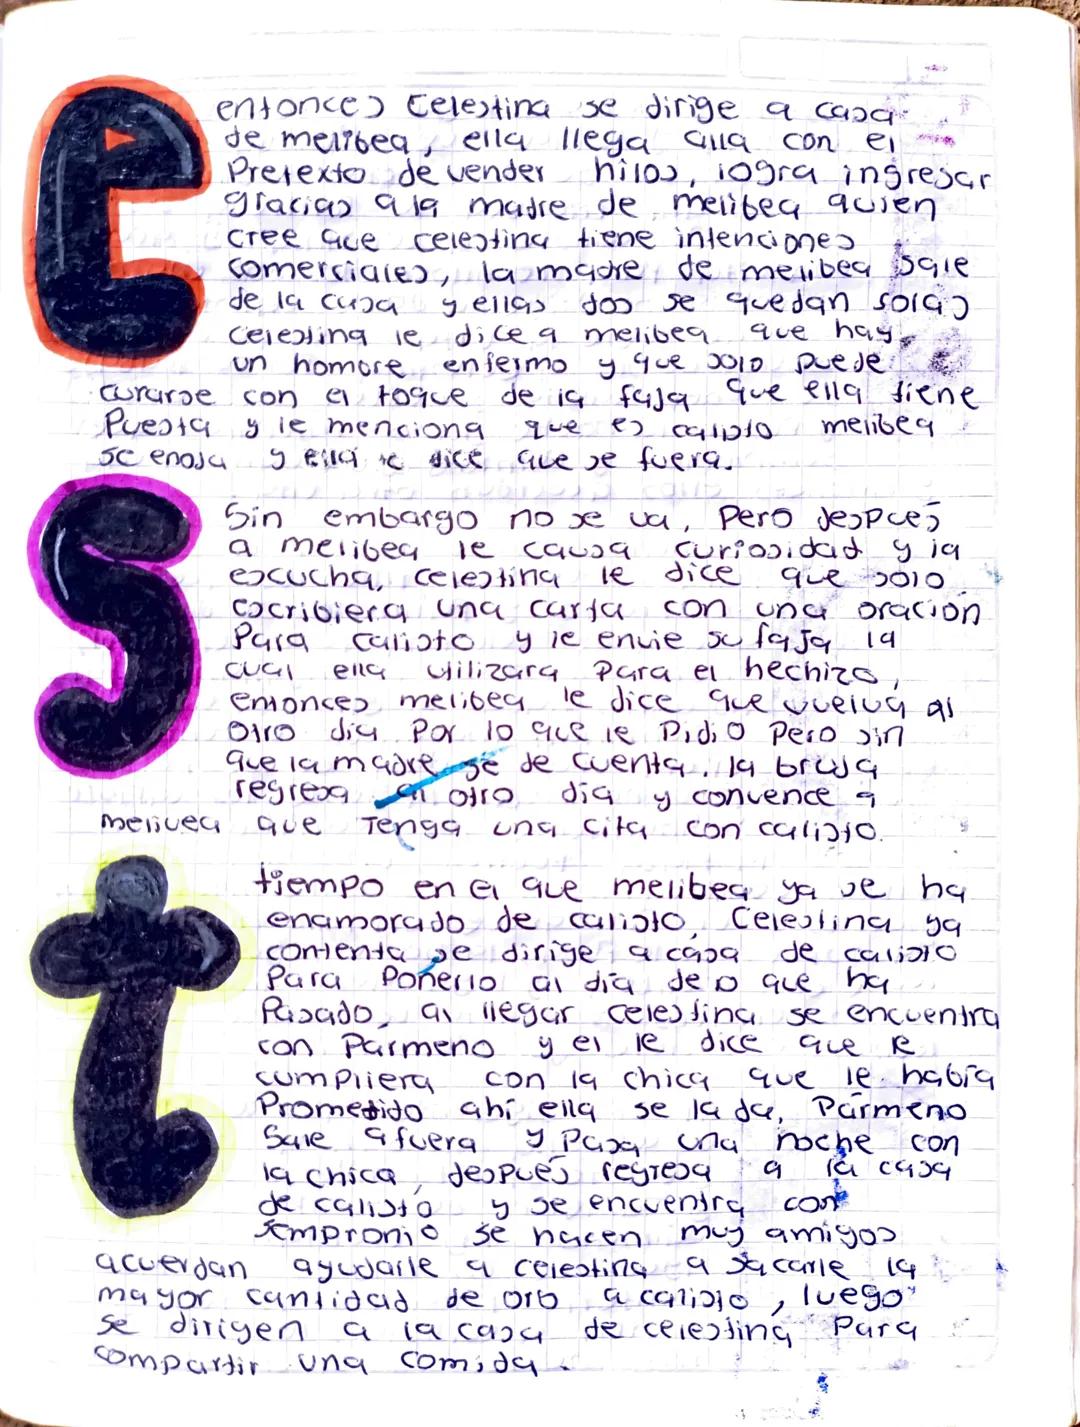 e
entonces Celestina se dirige a casa
de melibea, ella llega alla con el
Pretexto de vender hilos, logra ingresar
gracias a la madre de melibea quien
cree que celestina tiene intenciones
comerciales, la madre de melibea sale
de la casa y ellas dos se quedan solas
celestina le dice a melibea que hay
un hombre enfermo y que solo puede
curarse con el toque de la faja que ella tiene
Puesta y le menciona que es calisto melibea
se enoja y ella le dice que se fuera.
S
Sin embargo no se va, Pero despues
a melibea le causa curiosidad y la
escucha, celestina le dice que solo
escribiera una carta con una oración
Para calisto y le envie su faja la
cual ella utilizara Para el hechizo,
entonces melibea le dice que vuelva al
otro dia Por lo que le Pidio Pero sin
que la madre se de cuenta. la bruja
regresa al otro dia y convence a
melivea que Tenga una cita con calisto.
t
tiempo en el que melibea ya se ha
enamorado de calisto, Celestina ya
contenta se dirige a casa de calisto
Para Ponerlo al día de o que ha
Pasado, al llegar celestina se encuentra
con Parmeno y el le dice que le
cumpliera con la chica que le había
Prometido ahí ella se la da, Pármeno
Sale afuera y Pasa una noche con
la chica, después regresa a la casa
de calisto y se encuentra con
sempronio se hacen muy amigos
acuerdan ayudarle a celestina a sacarle la
mayor cantidad de oro a calisto, luego
se dirigen a la casa de celestina Para
compartir una comida.